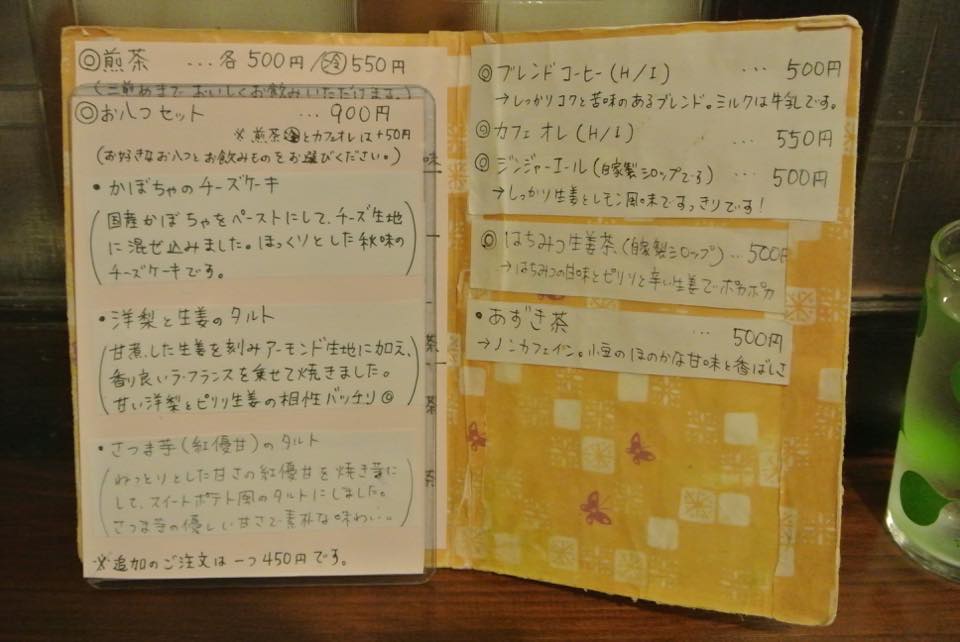 ◎煎茶 …各500円/冷550円
(二煎めまでおいしくお飲みいただけます。)
◎お八つセット … 900円
※煎茶冷とカフェオレは+50円
(お好きなお八つとお飲みものをお選びください。)
・かぼちゃのチーズケーキ
(国産かぼちゃをペーストにして、チーズ生地
に混ぜ込みました。ほっくりとした秋味の
チーズケーキです。)
・洋梨と生姜のタルト
(甘煮した生姜を刻みアーモンド生地に加え、
香り良いラ・フランスを乗せて焼きました。
甘い洋梨とピリリ生姜の相性バッチリ◎)
・さつま芋(紅優甘)のタルト
(ねっとりとした甘さの紅優甘を焼き芋に
して、スイートポテト風のタルトにしました。
さつま芋の優しい甘さで素朴な味わい。)
※追加のご注文は一つ450円です。
味
茶
茶
茶
◎ブレンドコーヒー(H/I) … 500円
→しっかりコクと苦味のあるブレンド。ミルクは牛乳です。
◎カフェオレ(H/I) … 550円
◎ジンジャーエール(自家製シロップです) … 500円
→しっかり生姜とレモン風味ですっきりです!
◎はちみつ生姜茶(自家製シロップ)…500円
→はちみつの甘味とピリリと辛い生姜でポカポカ
・あずき茶 … 500円
→ノンカフェイン。小豆のほのかな甘味と香ばしさ